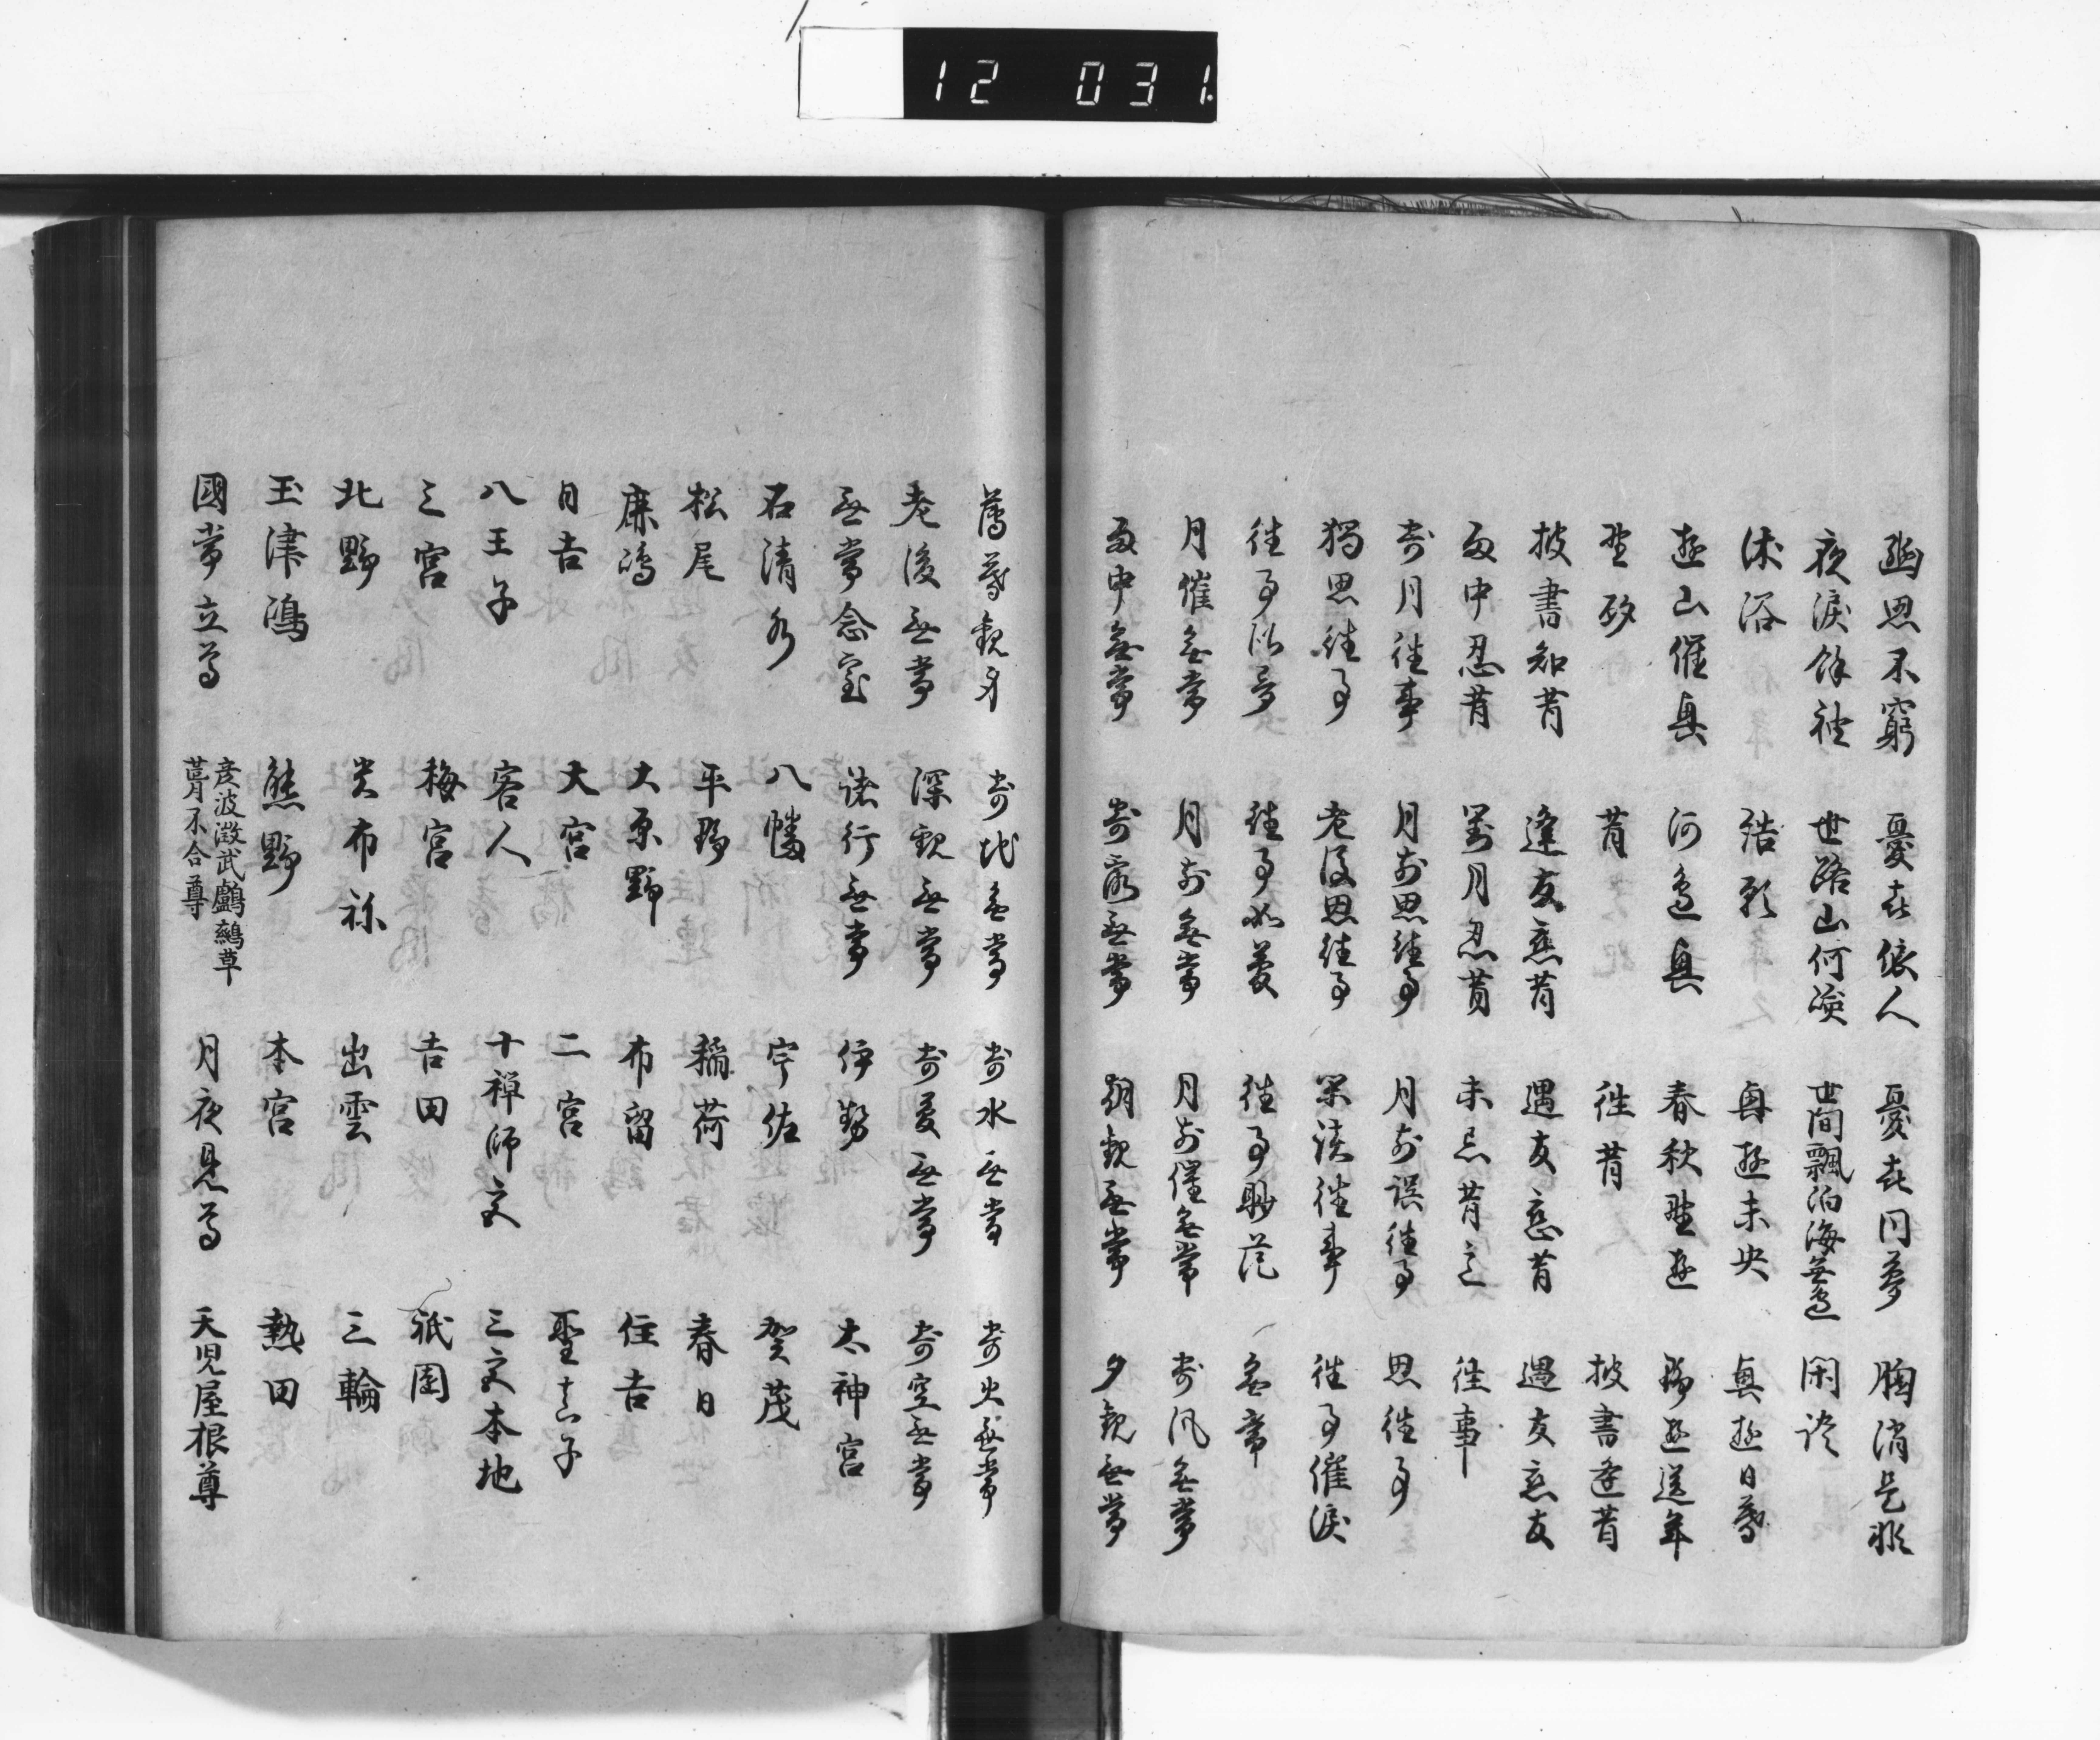 12 031
幽思不窮 憂喜依人 憂喜同夢 胸消是非
夜涙餘袖 世路山何嶮 世間飄泊海無邊 閑談
沐浴 結影 興遊未央 興遊日暮
遊山催興 河邊興 春秋野遊 野遊送年
懐昔 往昔 披書逢昔
披書知昔 逢友恋昔 遇友恋昔 遇友恋友
雨中忍昔 對月忍昔 未忘昔 往事
寄月往事 月前思往事 月前談往事 思往事
獨思往事 老後思往事 閑談往事 往事催涙
往事似夢 往事如夢 往事眇茫 無常
月催無常 月前無常 月前催無常 寄風無常
雨中無常 寄露無常 朝観無常 夕観無常
薄暮観身 寄地無常 寄水無常 寄火無常
老後無常 深観無常 寄夢無常 寄空無常
無常念室 諸行無常 伊勢 太神宮
石清水 八幡 宇佐 賀茂
松尾 平野 稲荷 春日
鹿嶋 大原野 布留 住吉
日吉 大宮 二宮 聖真子
八王子 客人 十禅師 三宮本地
三宮 梅宮 吉田 祇園
北野 貴布祢 出雲 三輪
玉津嶋 熊野 本宮 熱田
國常立尊 彦波瀲武鸕鶿草葺不合尊 月夜見尊 天児屋根尊